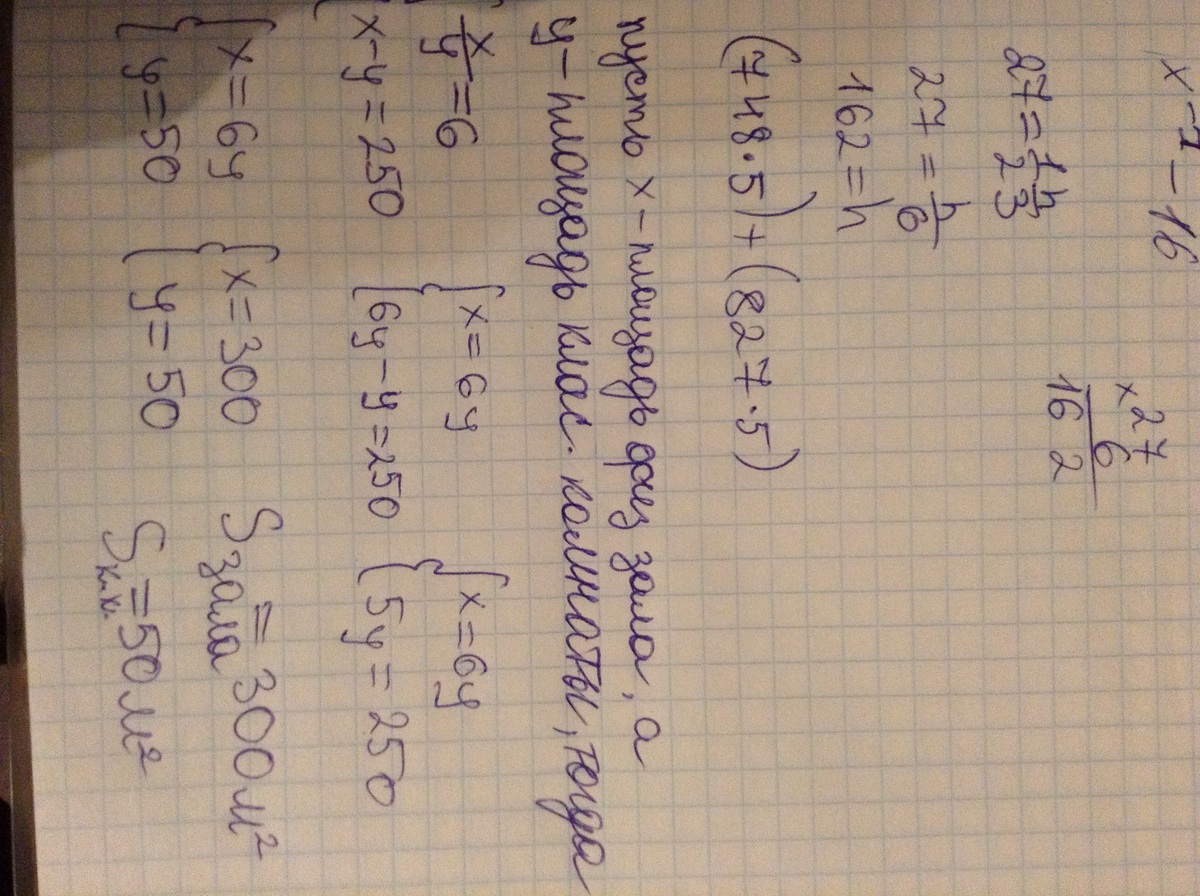 x⁻⁷ – 16
27 = 1/2 h/3
27 = h/6
162 = h
× 27
6
162
(748·5)+(827·5)
пусть x – площадь физ зала, а
y – площадь клас. комнаты, тогда
{ x/y = 6 { x = 6y { x = 6y
{ x – y = 250 { 6y – y = 250 { 5y = 250
{ x = 6y { x = 300 S зала = 300 м²
{ y = 50 { y = 50 S к.к. = 50 м²